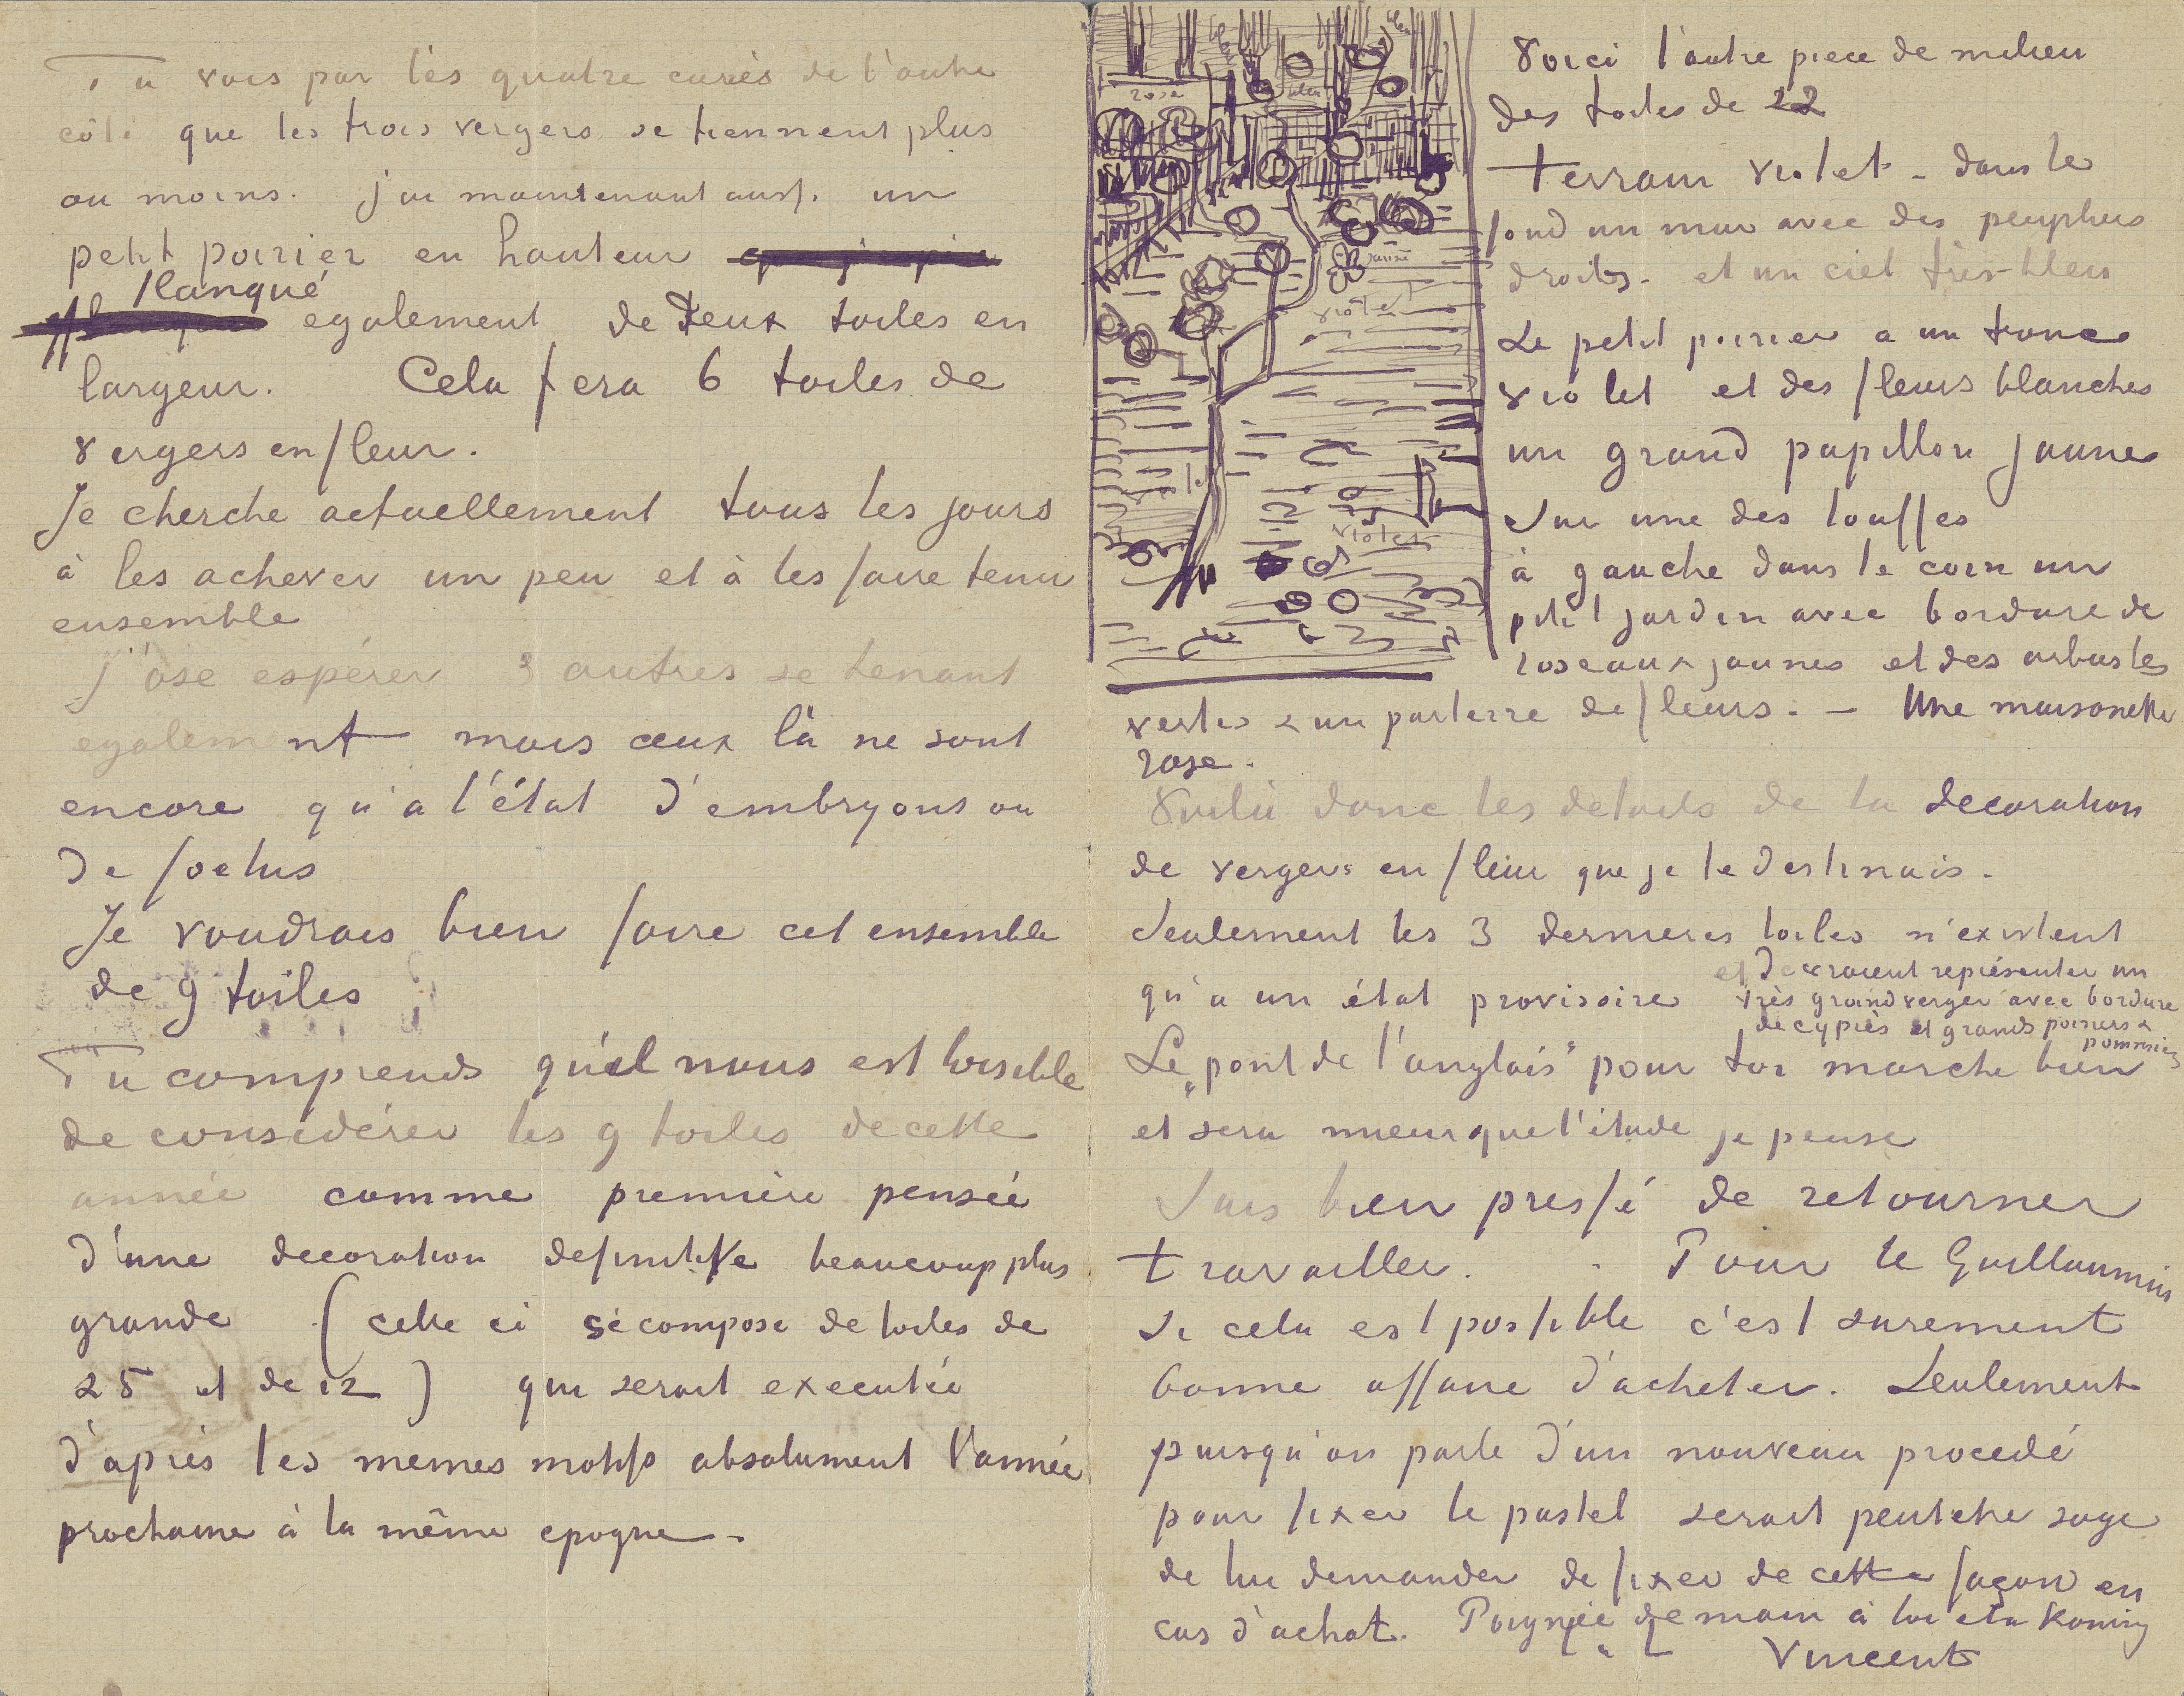 Tu vois par les quatre carrés de l'autre
côté que les trois vergers se tiennent plus
ou moins. j'ai maintenant aussi un
petit poirier en hauteur
flanqué
également de deux toiles en
largeur. Cela fera 6 toiles de
vergers en fleur.
Je cherche actuellement tous les jours
à les achever un peu et à les faire tenir
ensemble
J'ose espérer 3 autres se tenant
egalement mais ceux là ne sont
encore qu'a l'état d'embryons ou
de foetus
Je voudrais bien faire cet ensemble
de 9 toiles
Tu comprends qu'il nous est loisible
de considérer les 9 toiles de cette
année comme première pensée
d'une decoration definitive beaucoup plus
grande (celle ci se compose de toiles de
25 et de 12) qui serait executée
d'après les memes motifs absolument l'année
prochaine à la même epoque.
rose
bleu
bleu
jaune
violet
violet
Voici l'autre piece de milieu
des toiles de 12
terrain violet - dans le
fond un mur avec des peupliers
droits - et un ciel très-bleu
Le petit poirier a un tronc
violet et des fleurs blanches
un grand papillon jaune
sur une des touffes
à gauche dans le coin un
petit jardin avec bordure de
roseaux jaunes et des arbustes
verts & un parterre de fleurs. - Une maisonette
rose.
Voilà donc les details de la decoration
de vergers en fleur que je te destinais.
Seulement les 3 dernieres toiles n'existent
qu'a un état provisoire et devraient représenter un
très grand verger avec bordure
de cyprès et grands poiriers &
pommiers
Le „pont de l'anglais" pour toi marche bien
et sera mieux que l'étude je pense
Suis bien pressé de retourner
travailler. Pour le Guillaumin
si cela est possible c'est surement
bonne affaire d'acheter. Seulement
puisqu'on parle d'un nouveau procedé
pour fixer le pastel serait peutetre sage
de lui demander de fixer de cette façon en
cas d'achat. Poignée de main à toi et a Koning
Vincent